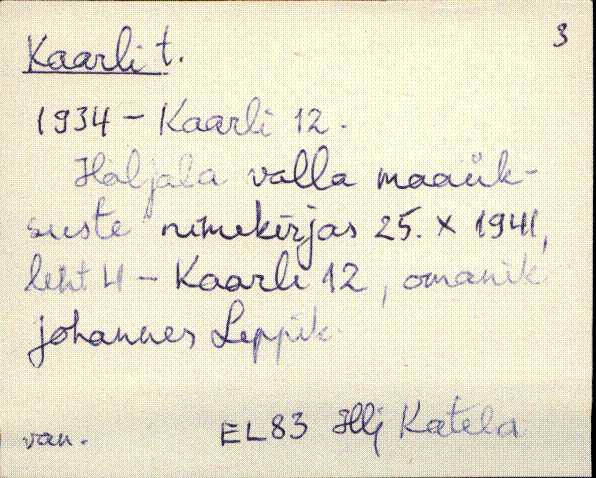 3
Kaarli t.
1934 - Kaarli 12.
Haljala valla maaük-
suste nimekirjas 25. X 1941,
leht 4 - Kaarli 12, omanik
Johannes Leppik
van. EL83 Hlj Katela